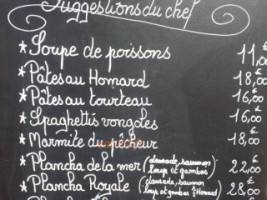 Suggestions du chef
* Soupe de poissons 11,00
* Pâtes au Homard 18,00
* Pates au tourteau 16,00
* Spaghettis vongoles 16,00
* Marmite du pêcheur 18,00€
* Plancha de la mer (daurade, saumon loup et gambas) 22,00€
* Plancha Royale (daurade, saumon loup et gambas ½ Homard) 28,00€